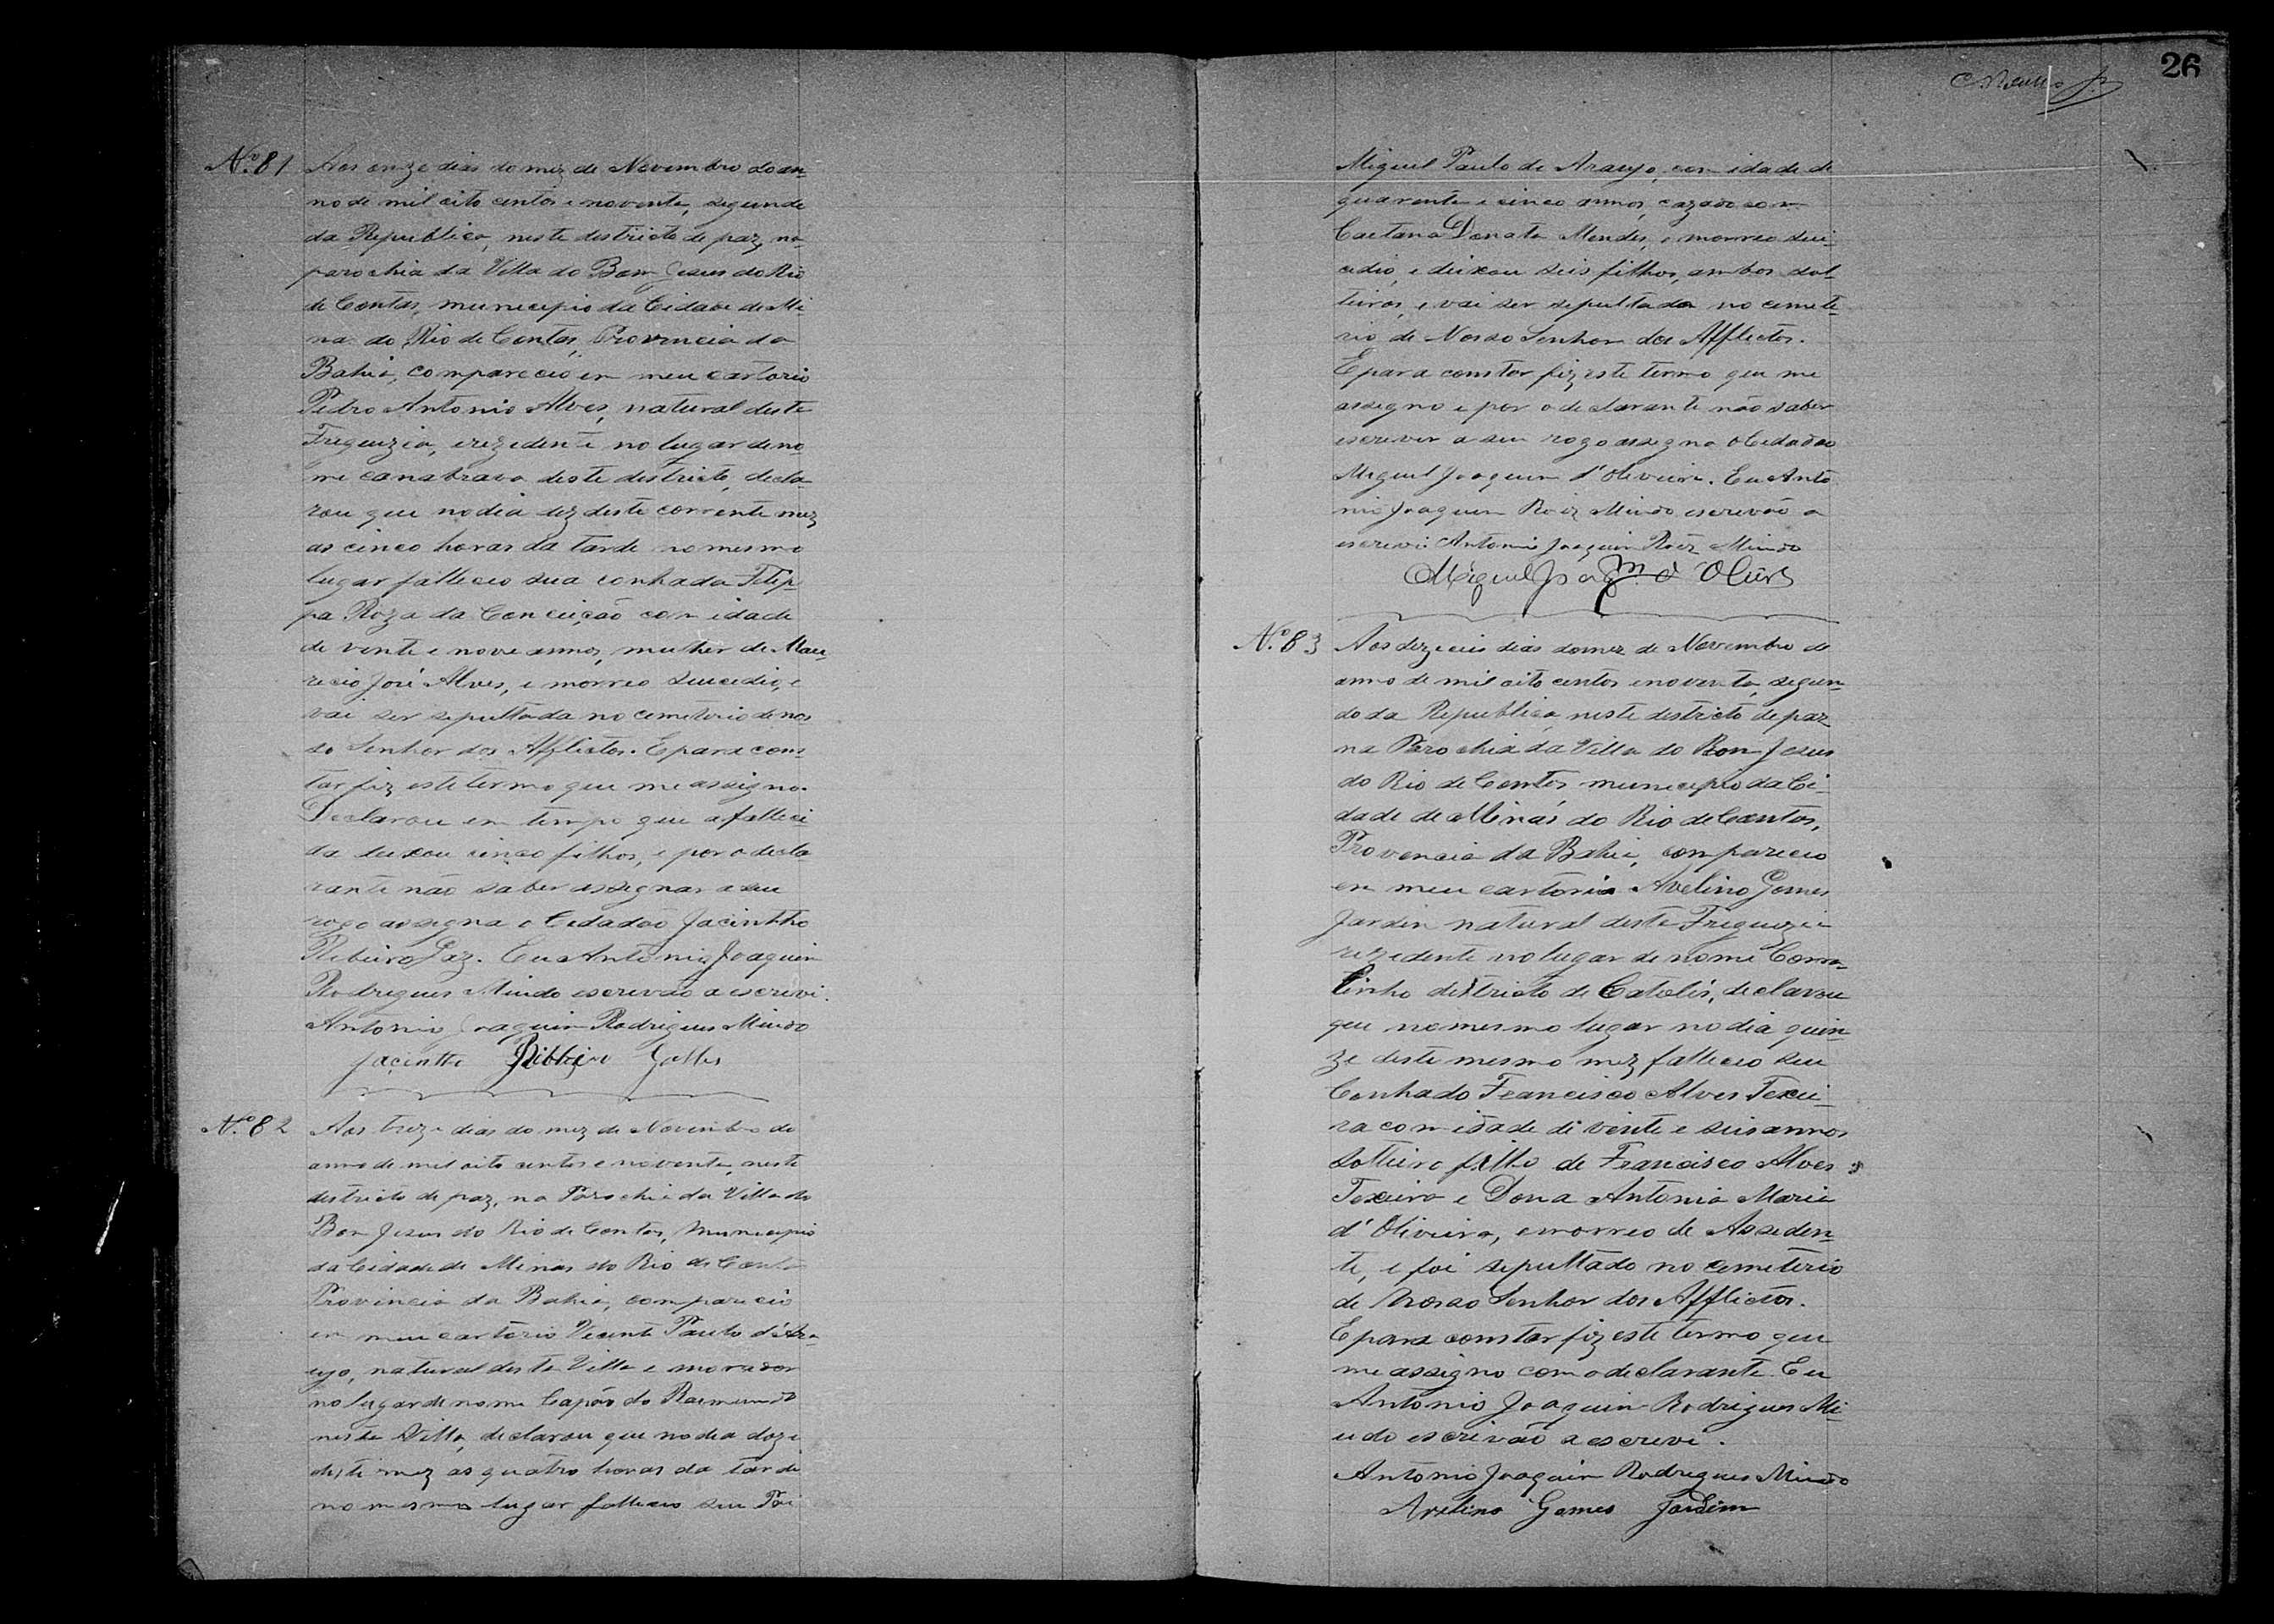 Nº 81 Aos onze dias do mez de Novembro do an-
no de mil oito centos e noventa, segundo
da Republica, neste destricto de paz, na
parochia da Villa do Bom Jesus do Rio
de Contas, municipio da Cidade de Mi-
nas do Rio de Contas, Provincia da
Bahia, compareceo em meu cartorio
Pedro Antonio Alves, natural deste
Freguezia, erezidente no lugar de no-
me canabrava deste destricto, decla-
rou que no dia dez deste corrente mez
as cinco horas da tarde no mesmo
lugar falleceo sua conhada Felip-
pa Roza da Conceição com idade
de vinte e nove annos, mulher de Mau-
ricio José Alves, e morreo suecedio, e
vai ser sepultada no cemeterio de nos-
so Senhor dos Afflictos. E para cons-
tar fiz este termo que me assigno.
Declarou em tempo que a falleci-
da deixou cinco filhos, e por o decla-
rante não saber assegnar a seu
rogo assegna o Cedadão Jacinthho
Ribeiro Gaz. Eu Antonio Joaquim
Rodrigues Miudo escrevão a escrevi.
Antonio Joaquim Rodrigues Miudo
Jacintho Ribeiro
Nº 82 Aos treze dias do mez de Novembro do
anno de mil oito centos e noventa, neste
destricto de paz, na Parochia da Villa do
Bom Jesus do Rio de Contas, Municipio
da Cidade de Minas do Rio de Contas
Provincia da Bahia, compareceo
em meu cartorio Vicente Paulo d'Ara-
ujo, natural desta Villa e morador
no lugar de nome Capão do Raemundo
nesta Villa, declarou que no dia doze
deste mez as quatro horas da tarde
no mesmo lugar falleceo seu Pai
26
Miguel Paulo de Araujo, com idade de
quarenta e cinco annos, cazado com
Caetana Donata Mendes, e morreo sui-
cidio, e deixou seis filhos, ambos sol-
teiros, e vai ser sepultada no cemete-
rio de Nosso Senhor dos Afflictos.
E para constar fiz este termo que me
assegno e por o declarante não saber
escrever a seu rogo assegna o Cedadão
Miguel Joaquim d'Oliveira. Eu Anto-
nio Joaquim Roiz Miudo escrevão a
escrevi. Antonio Joaquim Roiz Miudo
Miguel Joaqm d' Olivra
Nº 83 Aos dezeceis dias do mez de Novembro do
anno de mil oito centos enoventa, segun-
do da Republica neste destricto de paz
na Parochia da Villa do Bom Jesus
do Rio de Contas municipio da Ci-
dade de Minas do Rio de Contas,
Provencia da Bahia, compareceo
em meu cartorio Avelino Gomes
Jardim natural desta Freguezia
rezedente no lugar de nome Corra-
linho destricto de Catolés, declarou
que no mesmo lugar no dia quin-
ze deste mesmo mez falleceo seu
Conhado Francisco Alves Texei-
ra com idade de vente e seis annos
Solteiro filho de Francisco Alves
Texeira e Dona Antonia Maria
d'Oliveira, e morreo de Asseden-
te, e foi sepultado no cemeterio
de Nosso Senhor dos Afflictos.
E para constar fiz este termo que
me assigno com o declarante. Eu
Antonio Joaquim Rodrigues Mi-
udo escrivão a escrevi.
Antonio Joaquim Rodrigues Miudo
Avelino Gomes Jardim